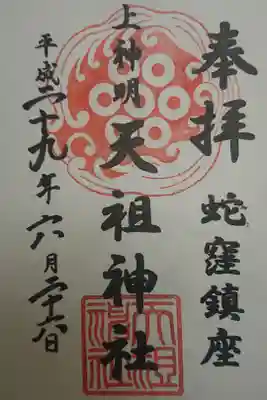 奉拝
蛇窪鎮座
上神明天祖神社
平成二十九年六月二十六日
天祖神社